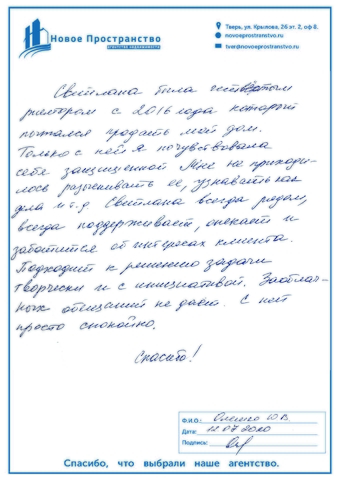 Новое Пространство
агентство недвижимости
Тверь, ул. Крылова, 26 эт. 2, оф 8.
novoeprostranstvo.ru
tver@novoeprostranstvo.ru
Светлана была
риелтором с 2016 года который
пытался продать мой дом.
Только с ней я почувствовала
себя защищенной Мне не приходи-
лось разыскивать ее, узнавать как
дела и т.д Светлана всегда рядом,
всегда поддерживает, опекает и
заботится об интересах клиента.
Подходит к решению задачи
творчески и с инициативой. Заоблач-
ных обещаний не давала. С ней
просто спокойно.
Спасибо!
Ф.И.О.: Ю.В.
Дата: 12 07 2020
Подпись:
Спасибо, что выбрали наше агентство.